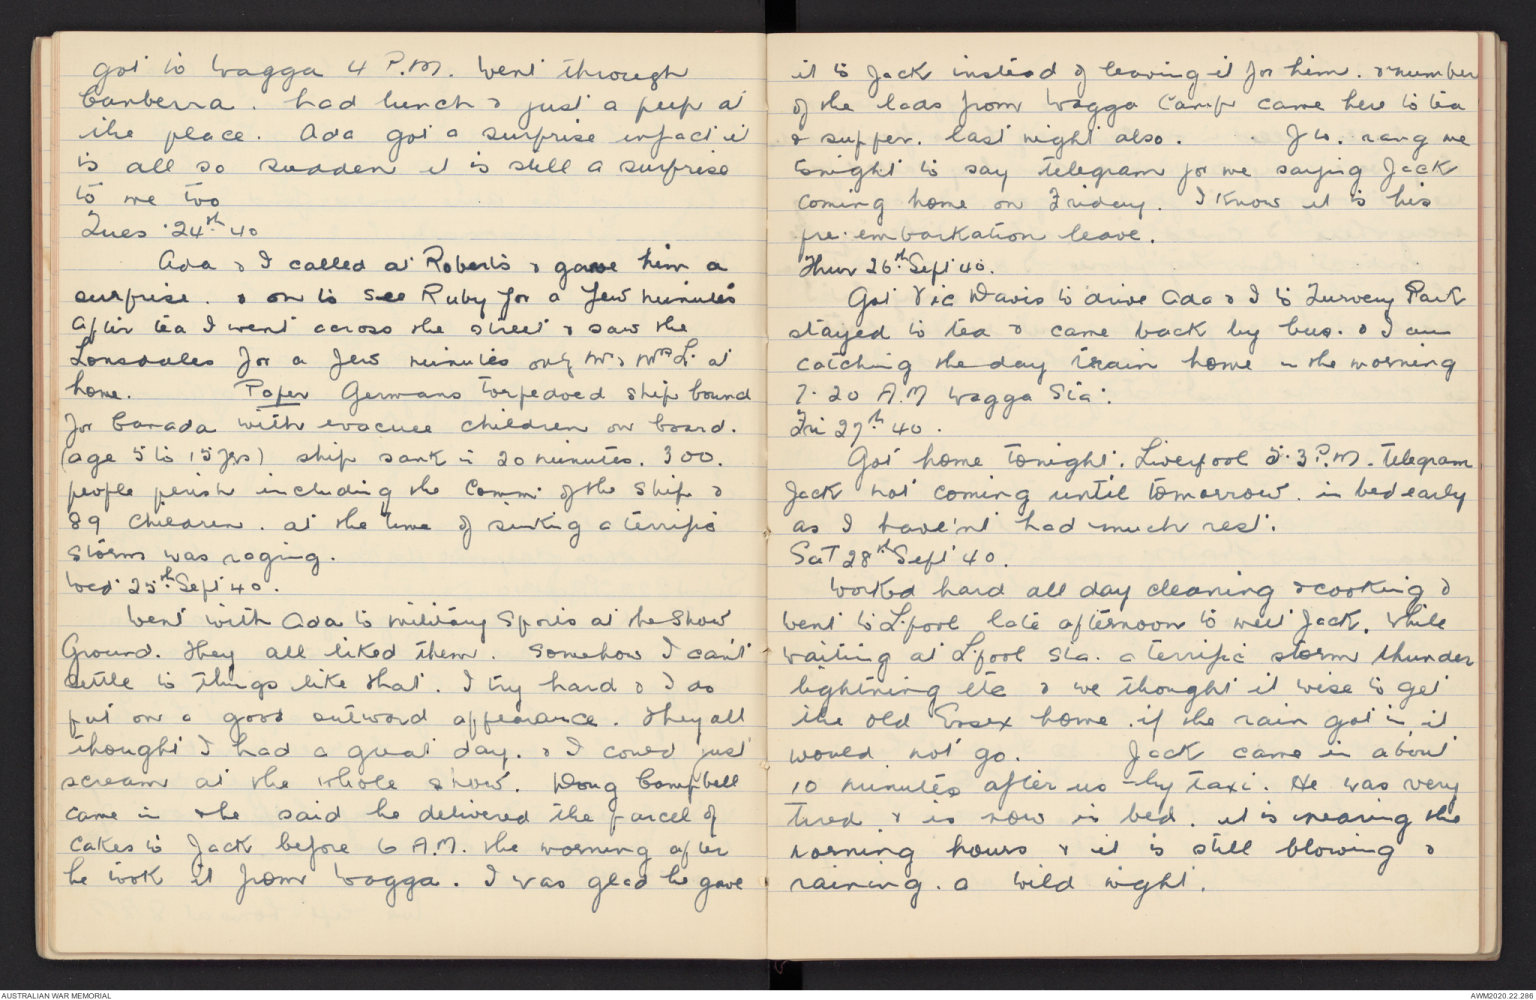 got to Wagga 4 P.M. Went through
Canberra. had lunch & just a peep at
the place. Ada got a surprise infact it
is all so sudden it is still a surprise
to me too
Tues. 24th 40
Ada & I called at Roberts & gave him a
surprise. & on to see Ruby for a few minutes
after tea I went across the street & saw the
Lonsdales for a few minutes only Mr & Mrs L. at
home. Paper Germans torpedoed ship bound
for Canada with evacuee children on board.
(age 5 to 15 yrs) ship sank in 20 minutes. 300.
people perish including the Comm. of the ship &
89 children. at the time of sinking a terrific
storm was raging.
Wed 25th Sept 40.
Went with Ada to military Sports at the Show
Ground. They all liked them. Somehow I can't
settle to things like that. I try hard & I do
put on a good outward appearance. They all
thought I had a great day. & I could just
scream at the whole show. Doug Campbell
came in & he said he delivered the parcel of
cakes to Jack before 6 A.M. the morning after
he took it from Wagga. I was glad he gave
it to Jack instead of leaving it for him. & number
of the lads from Wagga Camp came here to tea
& supper. last night also. J W. rang me
tonight to say telegram for me saying Jack
coming home on Friday. I know it is his
pre-embarkation leave.
Thur 26th Sept 40.
Got Vic Davis to drive Ada & I to Turvey Park
stayed to tea & came back by bus. & I am
catching the day train home in the morning
7.20 A.M Wagga Sta.
Fri 27th 40.
Got home tonight. Liverpool 5.3 P.M. telegram
Jack not coming until tomorrow. in bed early
as I have'nt had much rest.
Sat 28th Sept 40.
Worked hard all day cleaning & cooking &
went to L.pool late afternoon to meet Jack. While
waiting at L.pool Sta. a terrific storm thunder
lightning etc & we thought it wise to get
the old Essex home. if the rain got in it
would not go. Jack came in about
10 minutes after us by taxi. He was very
tired. & is now in bed. it is nearing the
morning hours & it is still blowing &
raining. a wild night.
AUSTRALIAN WAR MEMORIAL
AWM2020.22.286